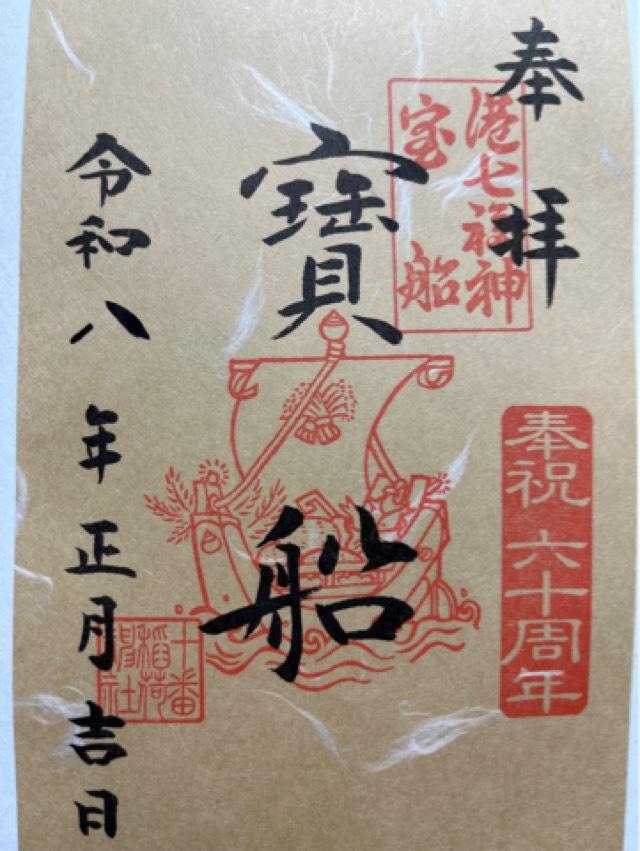 奉拝
港七福神
宝船
奉祝 六十周年
寳船
令和八年正月吉日
十番
稲荷
神社